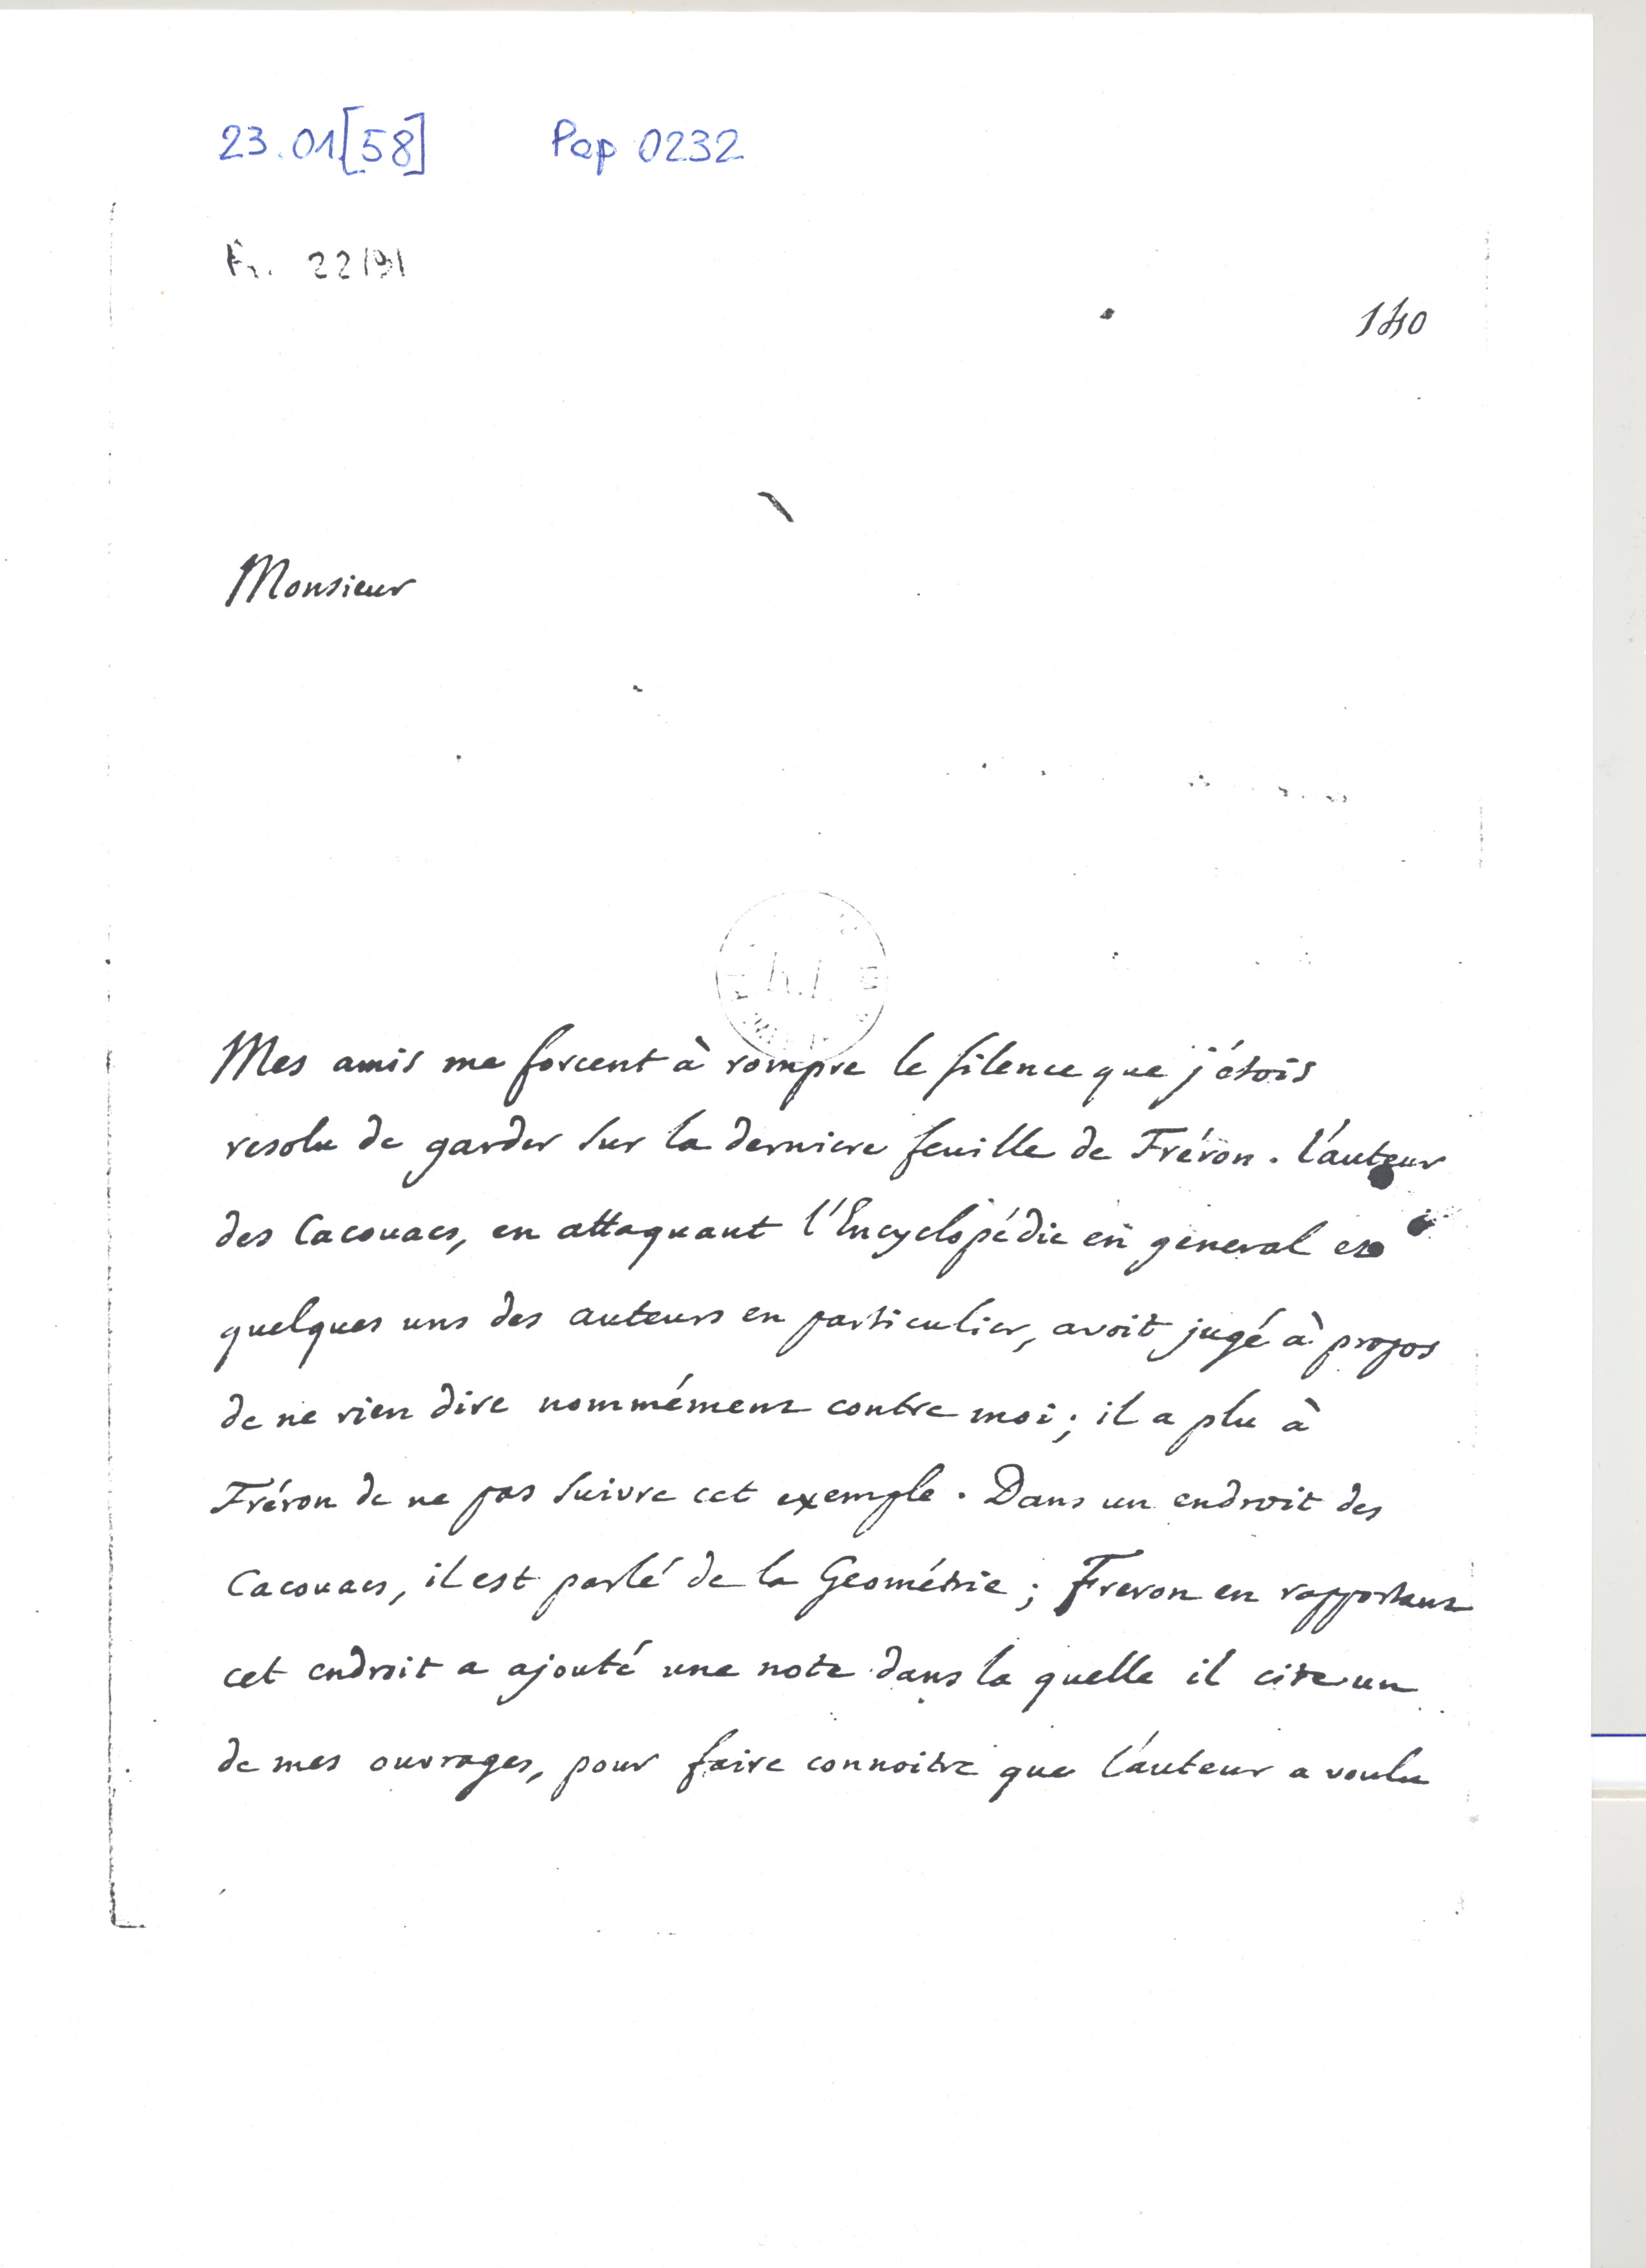 23.01[58] Pap 0232
Fr. 22191
140
Monsieur
Mes amis me forcent à rompre le silence que j'étois
resolu de garder sur la derniere feuille de Fréron. l'auteur
des Cacouacs, en attaquant l'Encyclopédie en general et
quelques uns des auteurs en particulier, avoit jugé à propos
de ne rien dire nommément contre moi; il a plu à
Fréron de ne pas suivre cet exemple. Dans un endroit des
Cacouacs, il est parlé de la Géométrie; Freron en rapportant
cet endroit a ajouté une note dans la quelle il cite un
de mes ouvrages, pour faire connoitre que l'auteur a voulu